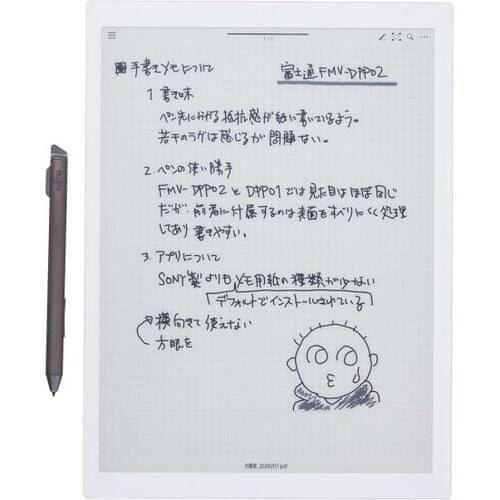 1 / 1
手書きメモについて
富士通 FMV-DPP02
1 書き味
ペン先にかかる抵抗感が紙に書いているよう。
若干のラグは感じるが問題ない。
2. ペンの使い勝手
FMV-DPP02とDPP01では見た目はほぼ同じ
だが、前者に付属するのは表面をすべりにくく処理
してあり書きやすい。
3. アプリについて
SONY製よりもメモ用紙の種類が少ない
デフォルトでインストールされている
横向きで使えない
方眼を